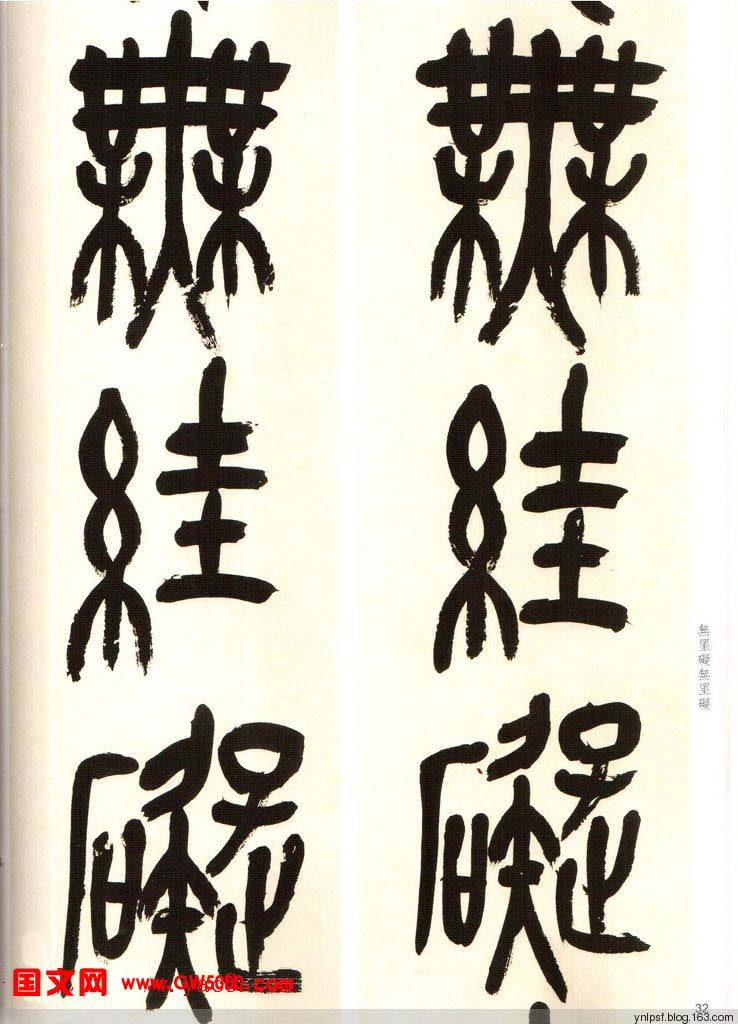 無絓礙
無絓礙
無罣礙無罣礙
32
国文网 www.GW5000.com
ynlpsf.blog.163.com